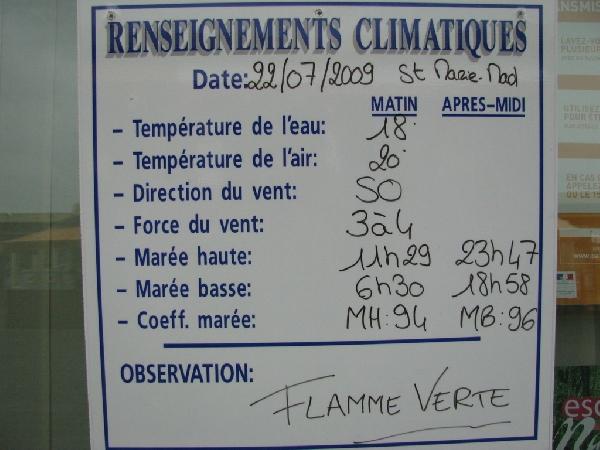 RENSEIGNEMENTS CLIMATIQUES
Date: 22/07/2009 St Marie-Mad
MATIN APRES-MIDI
- Température de l'eau: 18°
- Température de l'air: 20°
- Direction du vent: SO
- Force du vent: 3 à 4
- Marée haute: 11h29 23h47
- Marée basse: 6h30 18h58
- Coeff. marée: MH:94 MB:96
OBSERVATION:
FLAMME VERTE
LAVEZ-VO
PLUSIEUR
UTILISEZ
POUR ÉTE
EN CAS
APPELEZ
OU LE 15